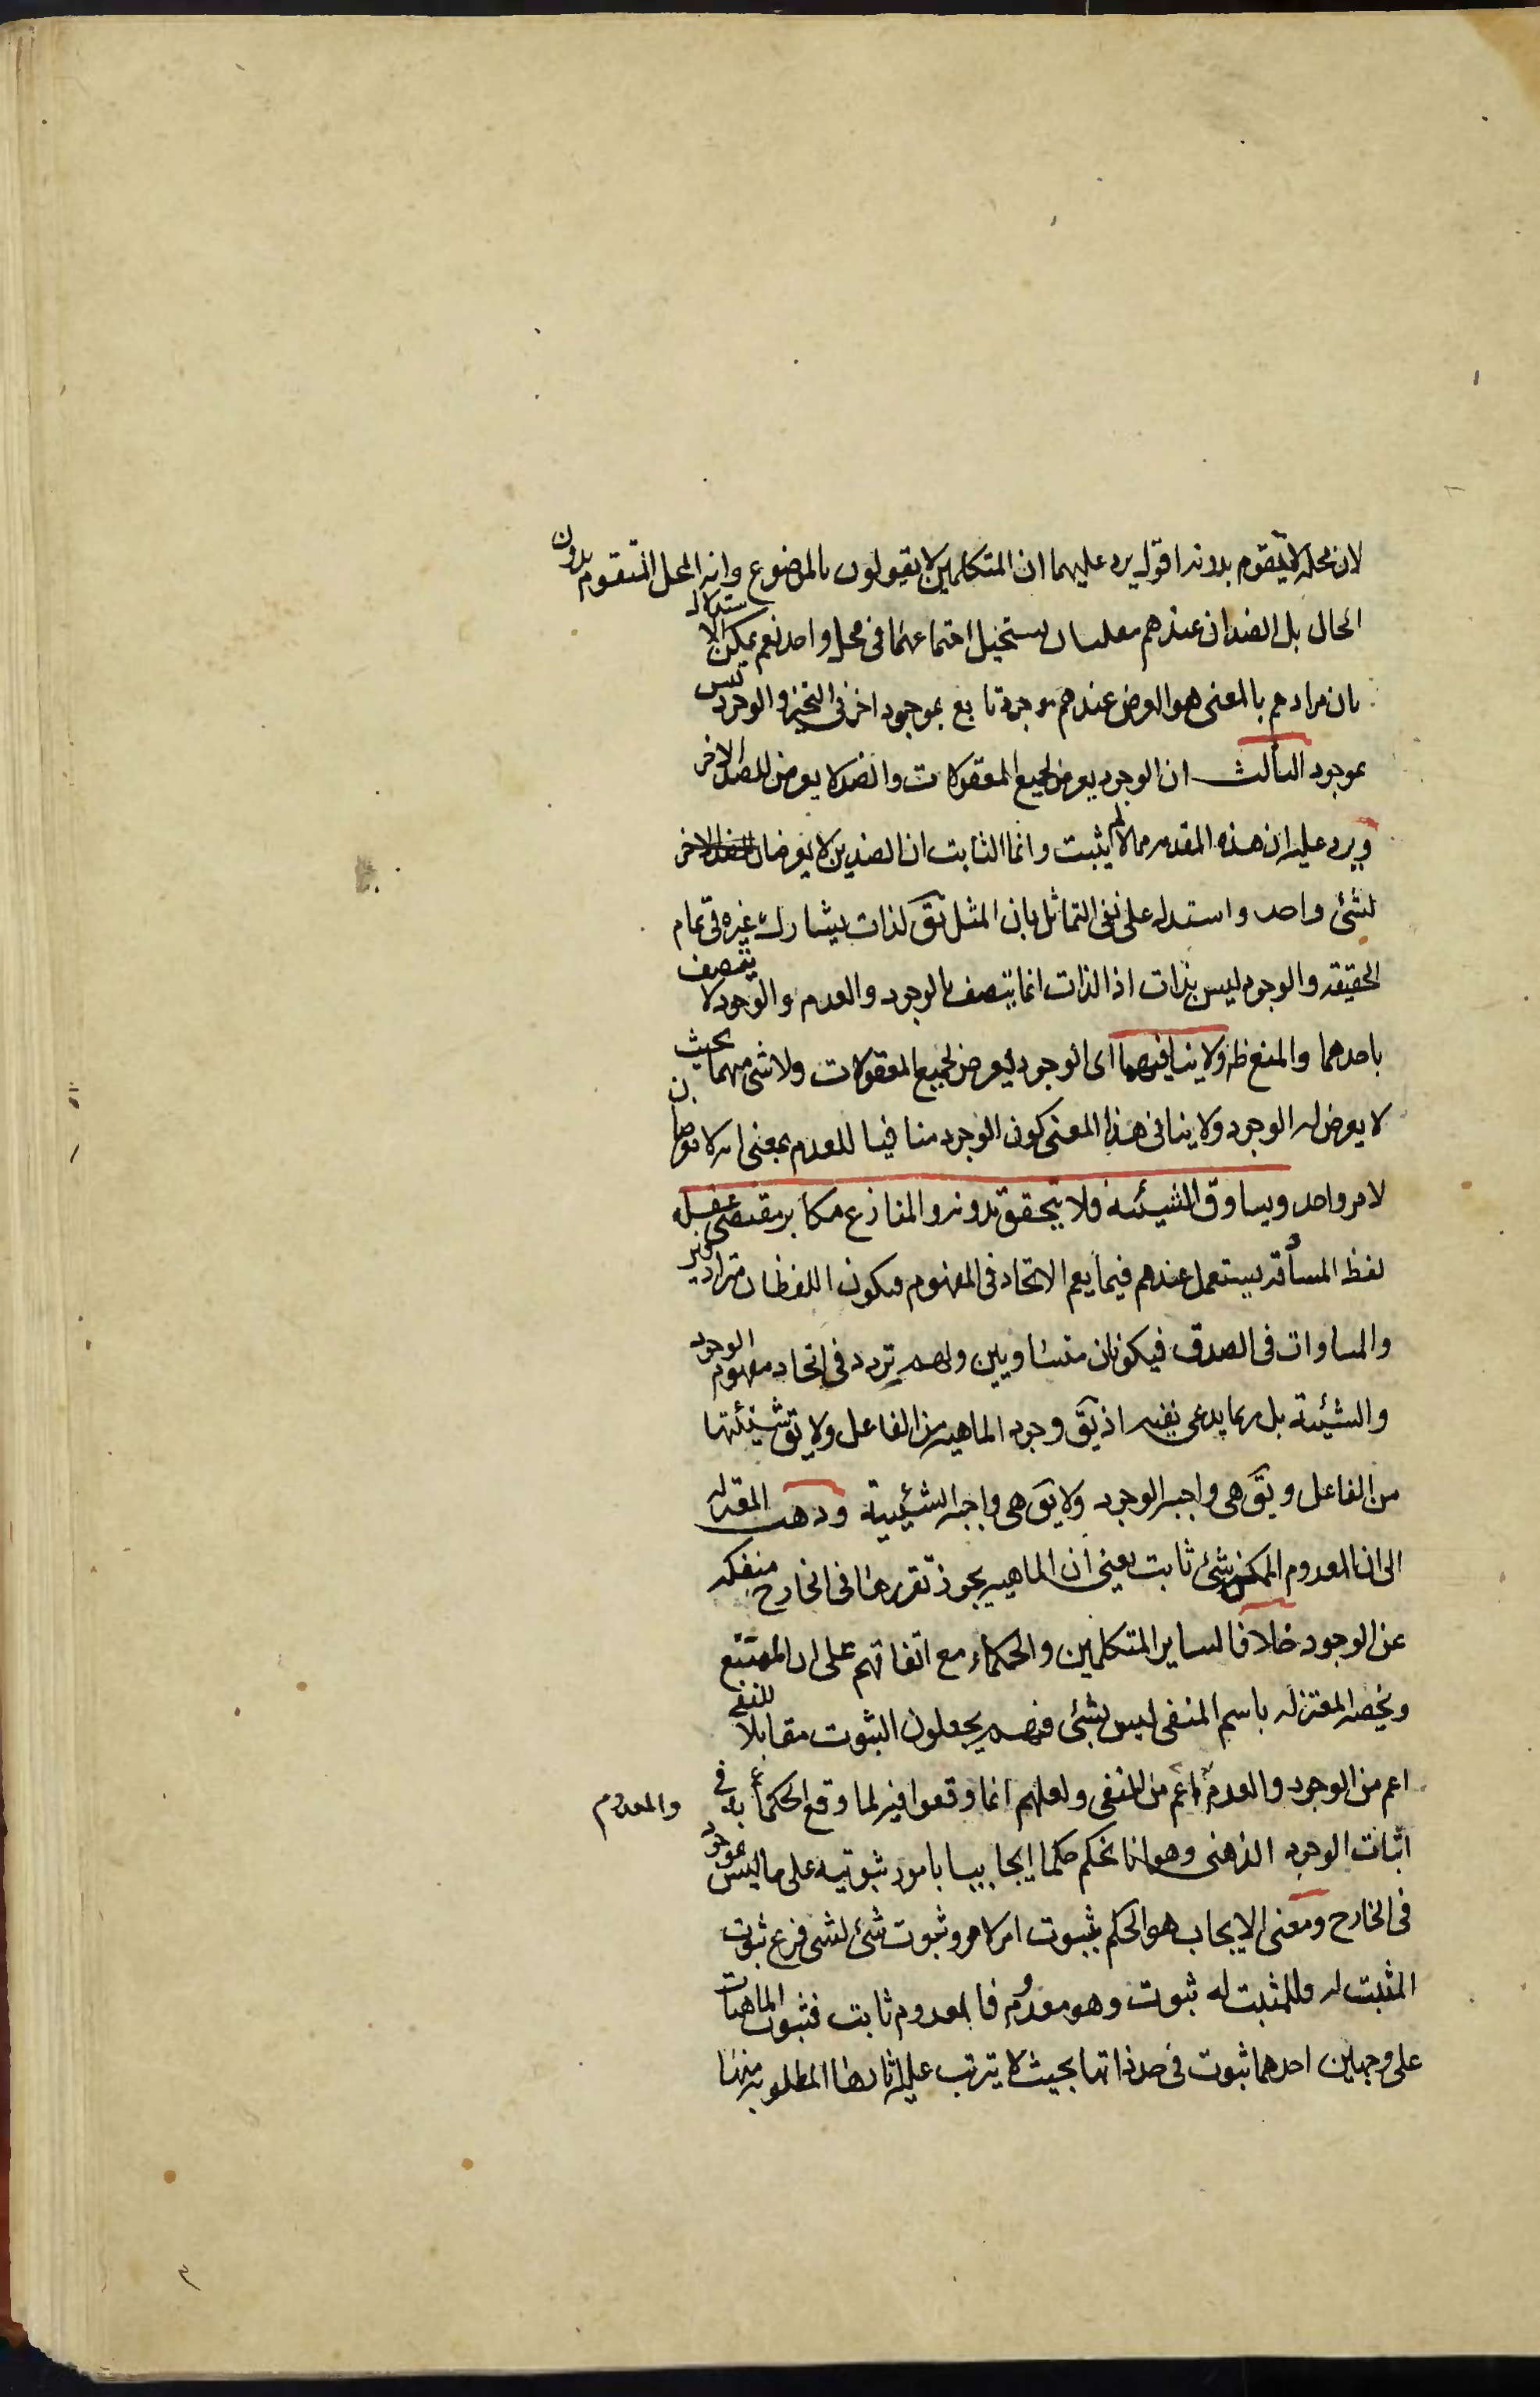 لان محله لا يتقوم بدونه اقول يرد عليهما ان المتكلمين لا يقولون بالموضوع وانه المحل المتقوم بدون
الحال بل الضدان عندهم معنيان يستحيل اجتماعهما فى محل واحد نعم يمكن الاستدلال
بان مرادهم بالمعنى هو العرض عندهم موجود تابع بموجود اخر فى التحيز والوجود ليس
بموجود الثالث ان الوجود يعرض لجميع المعقولات والضد لا يعرض للضد الاخر
ويرد عليه ان هذه المقدمه مما لم يثبت وانما الثابت ان الضدين لا يعرضان للضد الاخر
لشئ واحد واستدل على نفى التماثل بان المثل يق لذات يشارك غيره فى تمام
الحقيقه والوجود ليس بذات اذ الذات انما يتصف بالوجود والعدم والوجود لا يتصف
باحدهما والمنع ظ ولا ينافيهما اى الوجود يعرض لجميع المعقولات ولا شئ منهما بحيث
لا يعرض له الوجود ولا ينافى هذا المعنى كون الوجود منافيا للعدم بمعنى انه لا يعرضان
لامر واحد ويساوق الشيئية فلا يتحقق بدونه والمنازع مكابر مقتضى عقله
لفظ المساوقه يستعمل عندهم فيما يعم الاتحاد فى المفهوم فيكون اللفظان مترادفين
والمساوات فى الصدق فيكونان متساويين ولهم تردد فى اتحاد مفهوم الوجود
والشيئية بل ربما يدعى نفيه اذ يق وجود الماهيه من الفاعل ولا يق شيئيتها
من الفاعل ويق هى واجبه الوجود ولا يق هى واجبه الشيئية وذهب المعتزله
الى ان المعدوم الممكن شئ ثابت يعنى ان الماهيه يجوز تقررها فى الخارج منفكه
عن الوجود خلافا لساير المتكلمين والحكماء مع اتفاقهم على ان الممتنع
ويخصه المعتزله باسم المنفى ليس بشئ فهم يجعلون الثبوت مقابلا للنفى
اعم من الوجود والعدم اعم من المنفى ولعلهم انما وقعوا فيه لما وقع الحكماء به فى والمعدوم
اثبات الوجود الذهنى وهو انا نحكم حكما ايجابيا بامور ثبوتيه على ما ليس بموجود
فى الخارج ومعنى الايجاب هو الحكم بثبوت امر لامر وثبوت شئ لشئ فرع ثبوت
المثبت له وللمثبت له ثبوت وهو معدوم فالمعدوم ثابت فثبوت الماهيات
على وجهين احدهما ثبوت فى حد ذاتها بحيث لا يترتب عليه اثارها المطلوبه منها